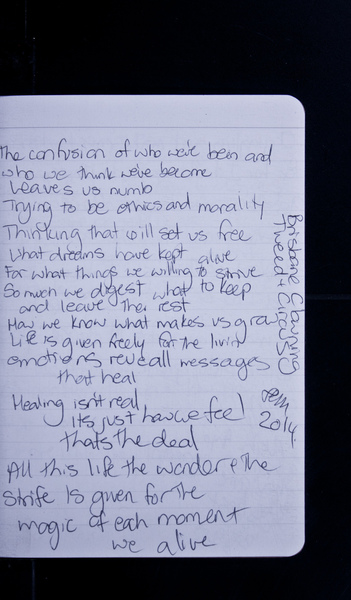 The confusion of who we've been and
who we think we've become
Leaves us numb
Trying to be ethics and morality
Thinking that will set us free
What dreams have kept alive
For what things we willing to strive
So much we digest what to keep
and leave the rest
How we know what makes us grow
Life is given freely for the livin
emotions reveall messages
that heal
Healing isn't real
its just how we feel
thats the deal
All this life the wonder & the
Strife Is given for the
magic of each moment
we alive
Brisbane Clowning
Tweed + Circus
2014